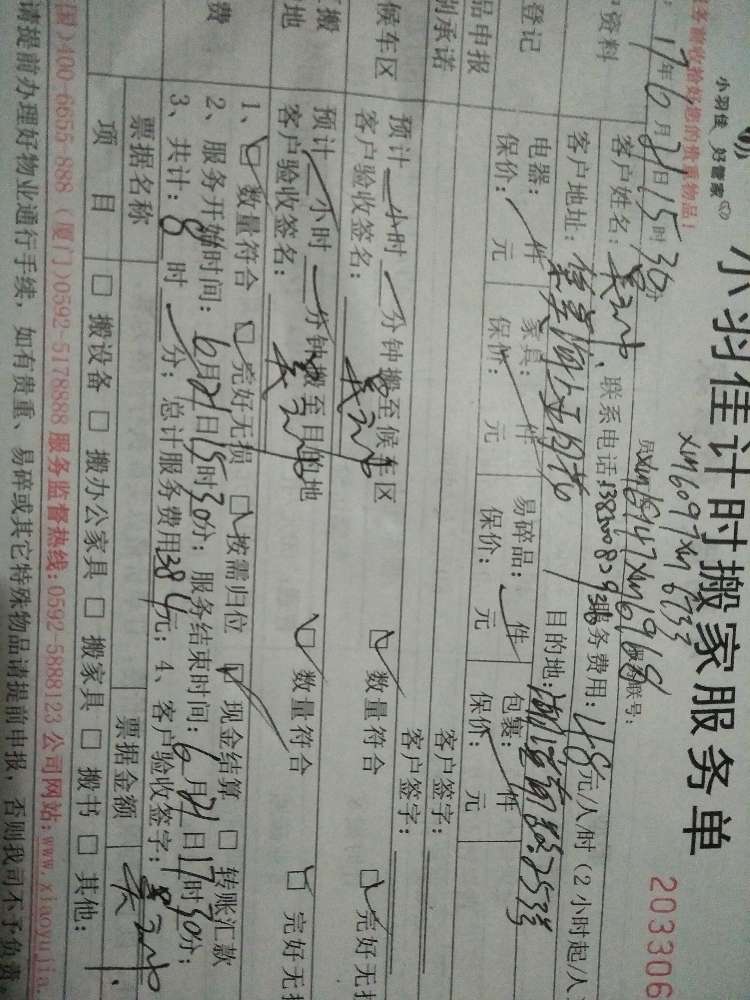 小羽佳 好管家
小羽佳计时搬家服务单
203306
务前收拾好您的贵重物品!
17年6月21日15时30分
xm6097 xm6733
xm6147 xm6968
户资料
客户姓名: 联系电话: 服务费用: 48元/人/时 (2小时起/人
客户地址: 目的地:
登记
电器: 件 家具: 件 易碎品: 件 包裹: 件
保价: 元 保价: 元 保价: 元 保价: 元
品申报
客户签字:
制承诺
客户签字:
候车区
预计 小时 分钟搬至候车区 数量符合 完好无损
客户验收签名:
搬
地
预计 小时 分钟搬至目的地 数量符合 完好无损
客户验收签名:
费
1、 数量符合 完好无损 按需归位 现金结算 转账汇款
2、服务开始时间: 6月21日15时30分; 服务结束时间: 6月21日17时30分;
3、共计: 8时 分; 总计服务费用384元; 4、客户验收签字:
票据名称 票据金额
项 目 搬设备 搬办公家具 搬家具 搬书 其他:
国)400-6655-888 (厦门)0592-5178888 服务监督热线:0592-5888123 公司网站:www.xiaoyujia.
请提前办理好物业通行手续, 如有贵重、易碎或其它特殊物品请提前申报, 否则我司不予负责